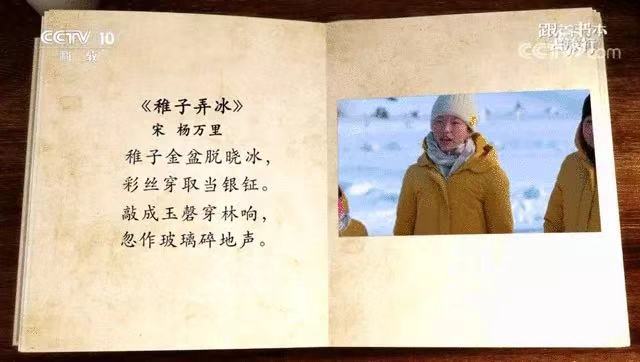 CCTV 10
《稚子弄冰》
宋 杨万里
稚子金盆脱晓冰，
彩丝穿取当银钲。
敲成玉磬穿林响，
忽作玻璃碎地声。
跟着书本
去旅行
CCTV.com